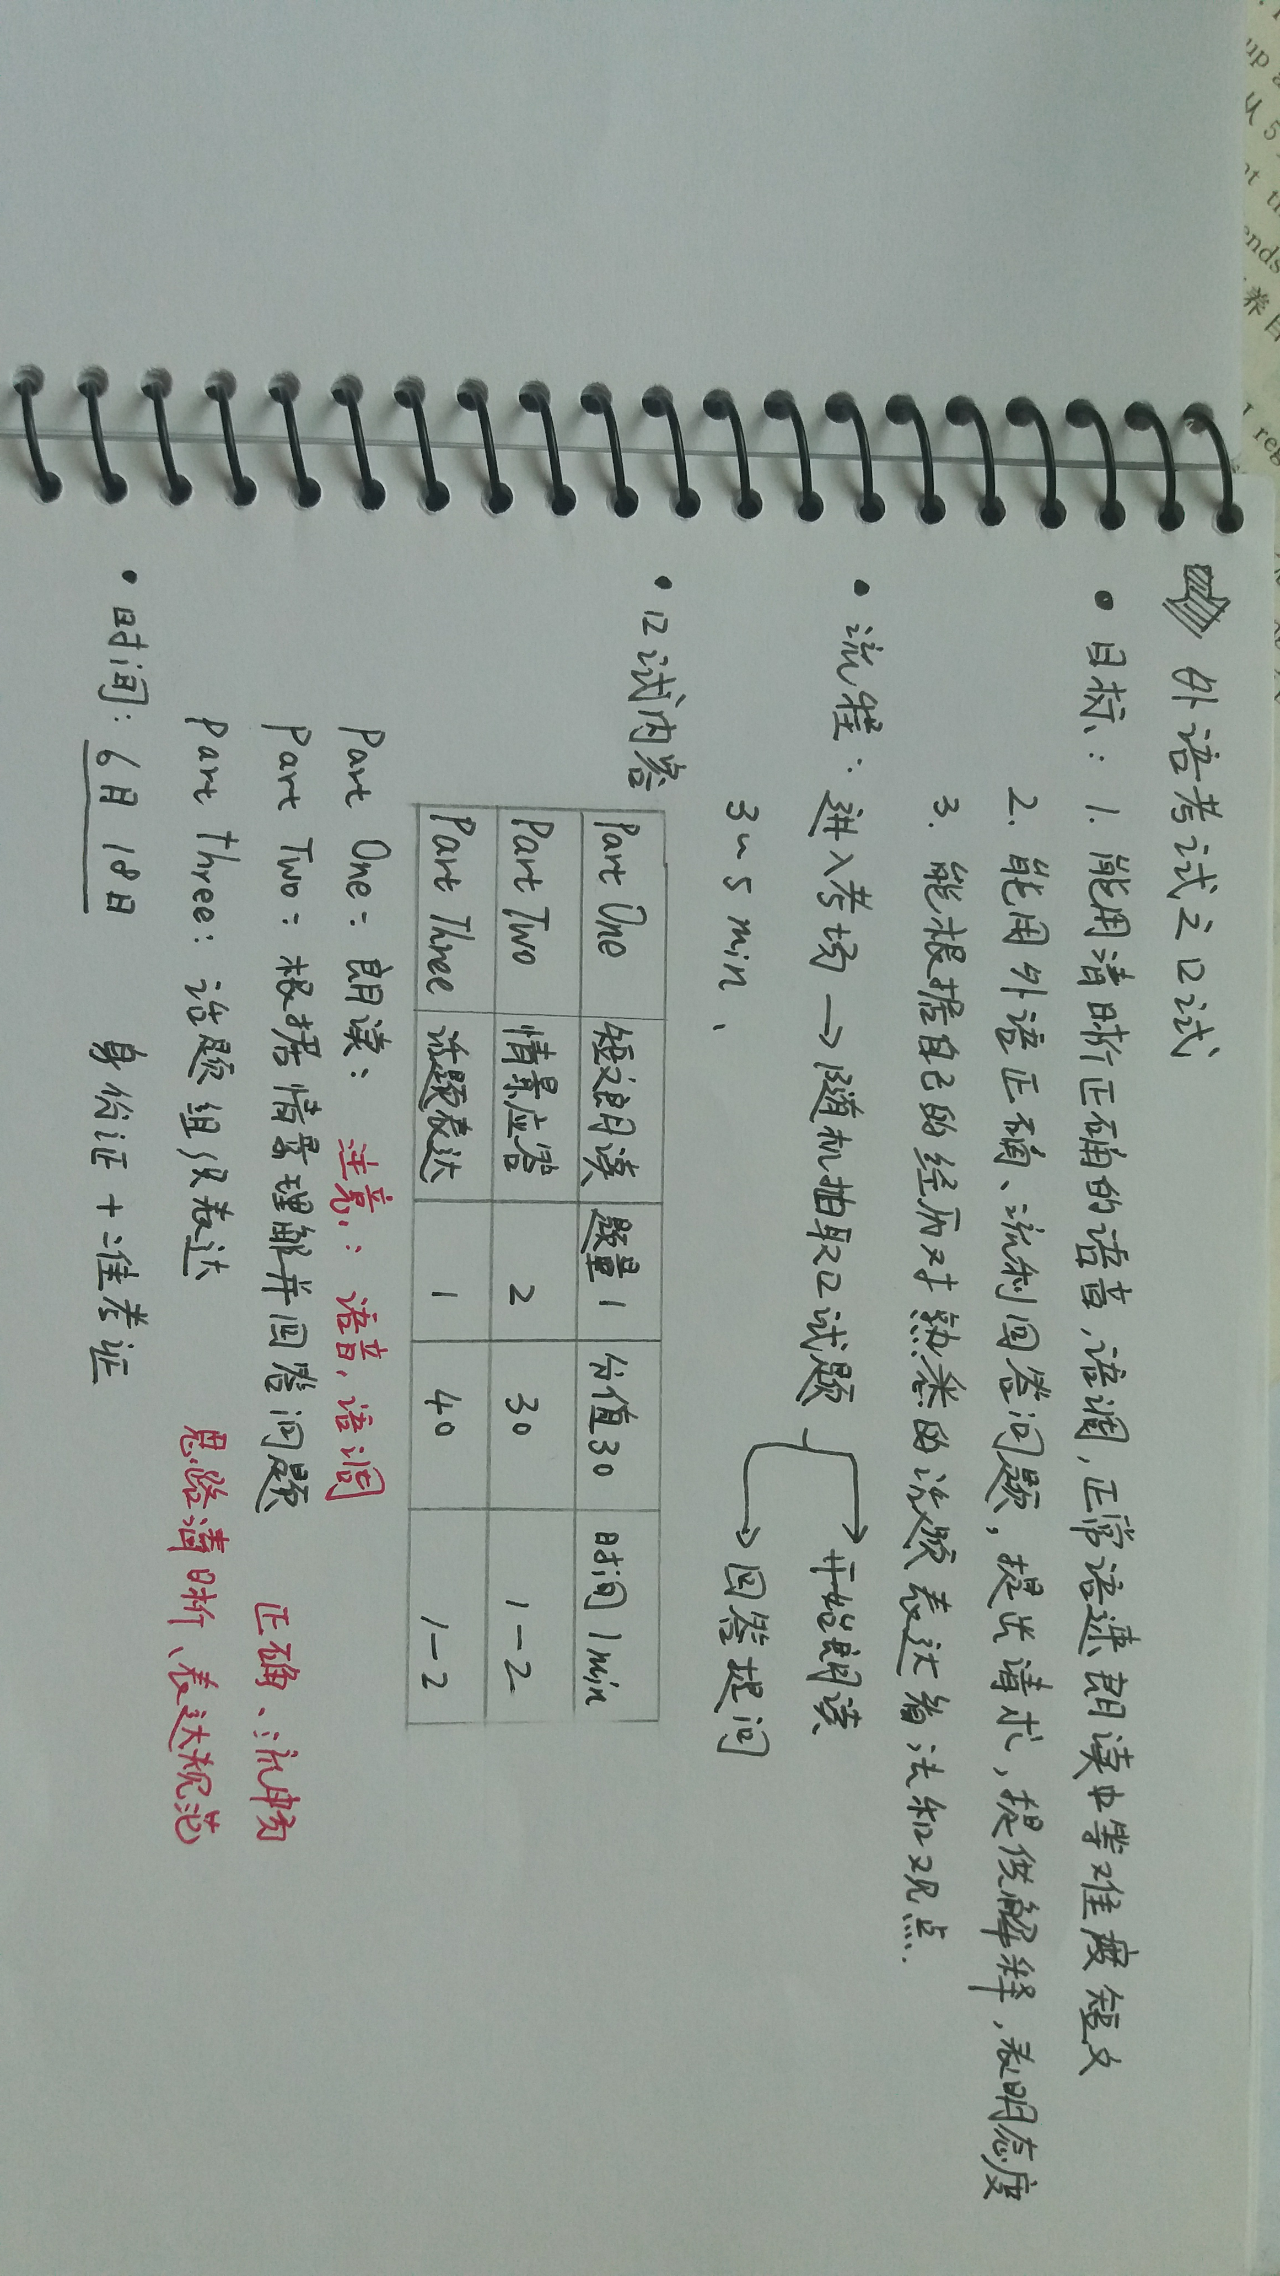 外语考试之口试
• 目标：1. 能用清晰正确的语音，语调，正常语速朗读中等难度短文
2. 能用外语正确、流利回答问题，提出请求，提供解释，表明态度
3. 能根据自己的经历对熟悉的话题表达看法和观点.
• 流程：进入考场 → 随机抽取口试题 → 开始朗读
→ 回答提问
3~5 min、
• 口试内容
Part One 短文朗读 题量 1 分值30 时间 1min
Part Two 情景应答 2 30 1-2
Part Three 话题表达 1 40 1-2
Part One：朗读： 注意：语音，语调
Part Two：根据情景理解并回答问题 正确、流畅
Part Three：话题组织表达 思路清晰、表达规范
• 时间：6月18日 身份证+准考证
up
从 5
at th
ends
I reg